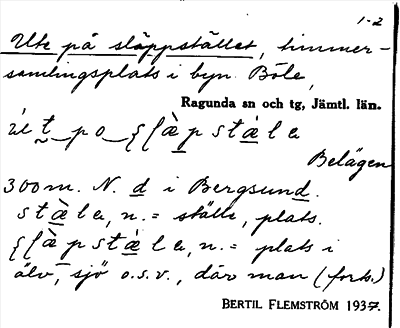 1-2
Ute på släppstället, timmer-
samlingsplats i byn Böle,
Ragunda sn och tg, Jämtl. län.
Belägen
300 m. N. d i Bergsund.
n. = ställe, plats.
n. = plats i
älv, sjö o.s.v., där man (forts.)
BERTIL FLEMSTRÖM 1937.